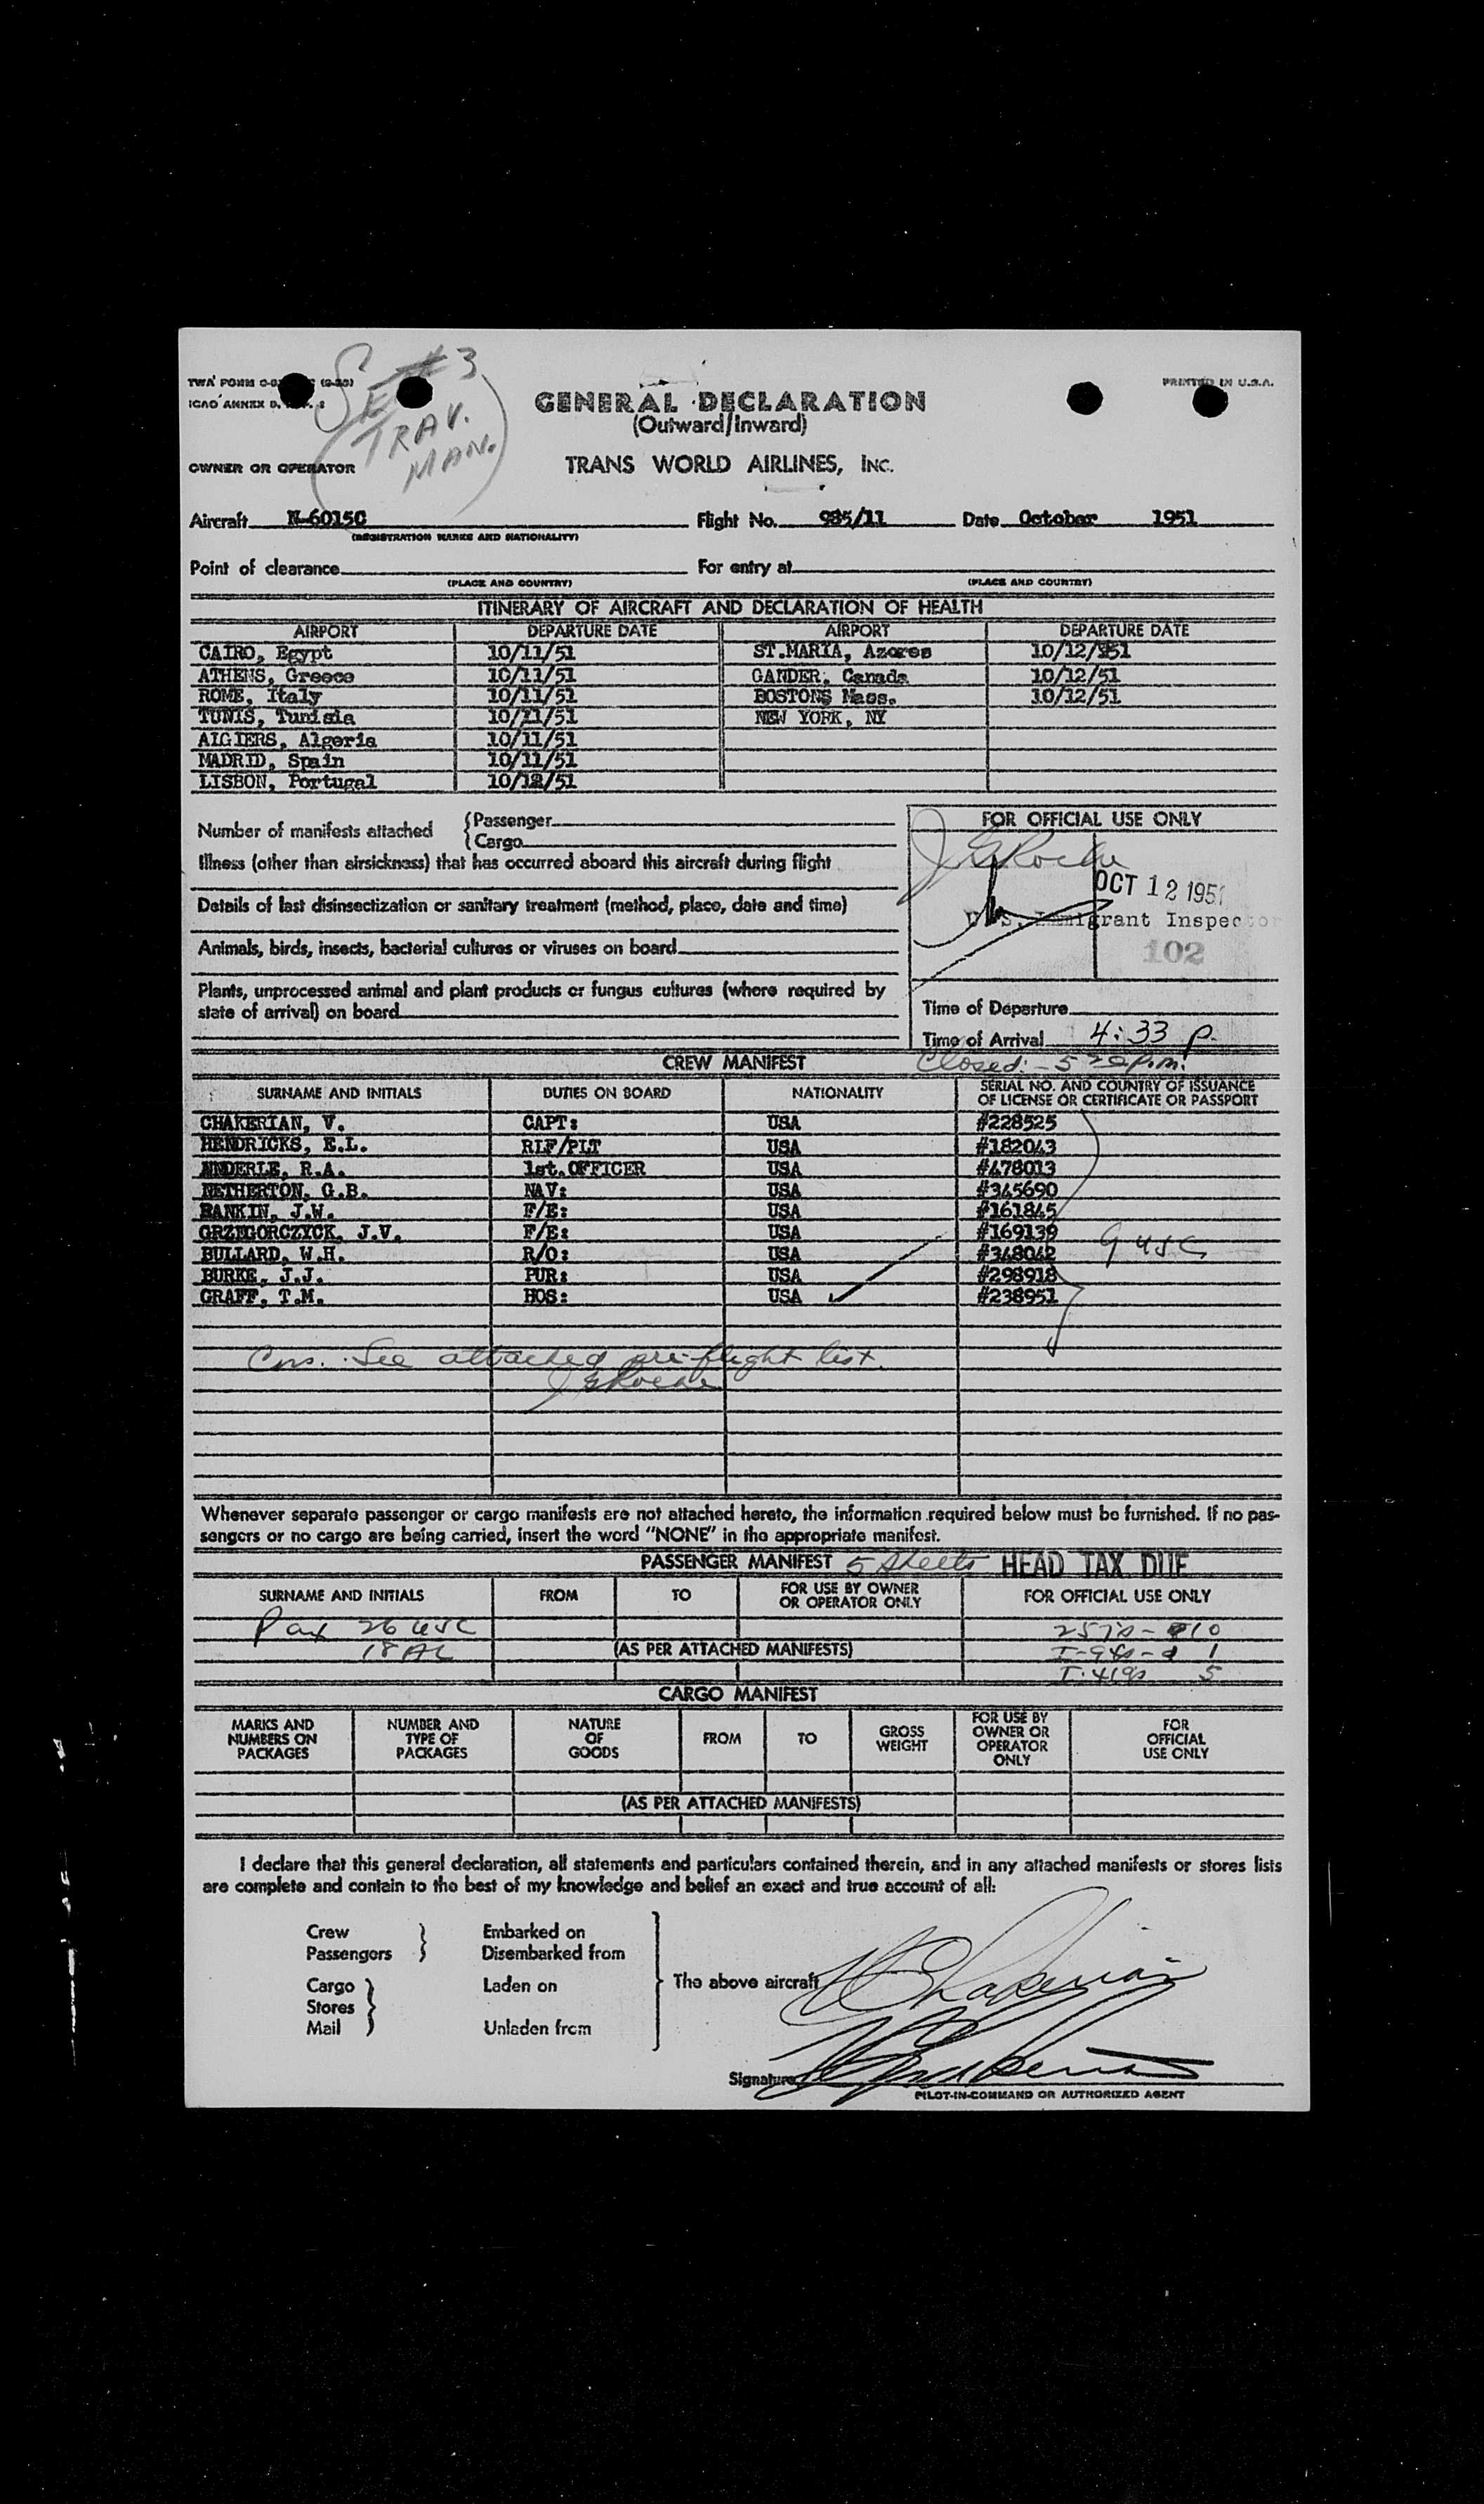 SE #3
(TRAV.
MAN.)
PRINTED IN U.S.A.
ICAO ANNEX 9,
GENERAL DECLARATION
(Outward/Inward)
OWNER OR OPERATOR TRANS WORLD AIRLINES, INC.
Aircraft N-6015C Flight No. 985/11 Date October 1951
(REGISTRATION MARKS AND NATIONALITY)
Point of clearance For entry at
(PLACE AND COUNTRY) (PLACE AND COUNTRY)
ITINERARY OF AIRCRAFT AND DECLARATION OF HEALTH
AIRPORT DEPARTURE DATE AIRPORT DEPARTURE DATE
CAIRO, Egypt 10/11/51 ST.MARIA, Azores 10/12/51
ATHENS, Greece 10/11/51 GANDER, Canada 10/12/51
ROME, Italy 10/11/51 BOSTON, Mass. 10/12/51
TUNIS, Tunisia 10/11/51 NEW YORK, NY
ALGIERS, Algeria 10/11/51
MADRID, Spain 10/11/51
LISBON, Portugal 10/12/51
Number of manifests attached { Passenger
{ Cargo
FOR OFFICIAL USE ONLY
Illness (other than airsickness) that has occurred aboard this aircraft during flight
JGRoche
OCT 12 1951
Details of last disinsectization or sanitary treatment (method, place, date and time)
U.S. Immigrant Inspector
Animals, birds, insects, bacterial cultures or viruses on board
102
Plants, unprocessed animal and plant products or fungus cultures (where required by
state of arrival) on board
Time of Departure
Time of Arrival 4:33 p.
CREW MANIFEST Closed: - 5 20 p.m.
SURNAME AND INITIALS DUTIES ON BOARD NATIONALITY SERIAL NO. AND COUNTRY OF ISSUANCE
OF LICENSE OR CERTIFICATE OR PASSPORT
CHAKERIAN, V. CAPT: USA #228525
HENDRICKS, E.L. RLF/PLT USA #182043
ANDERLE, R.A. 1st.OFFICER USA #478013
NETHERTON, G.B. NAV: USA #345690
RANKIN, J.W. F/E: USA #161845
GRZEGORCZYCK, J.V. F/E: USA #169139
BULLARD, W.H. R/O: USA #348042 9 USC
BURKE, J.J. PUR: USA #298918
GRAFF, T.M. HOS: USA #238951
See attached pre-flight list.
JGRoche
Whenever separate passenger or cargo manifests are not attached hereto, the information required below must be furnished. If no pas-
sengers or no cargo are being carried, insert the word "NONE" in the appropriate manifest.
PASSENGER MANIFEST 5 sheets HEAD TAX DUE
SURNAME AND INITIALS FROM TO FOR USE BY OWNER
OR OPERATOR ONLY FOR OFFICIAL USE ONLY
Pax 26 USC 257s - 10
18 AL (AS PER ATTACHED MANIFESTS) I-94s - 1
I-419s 5
CARGO MANIFEST
MARKS AND
NUMBERS ON
PACKAGES NUMBER AND
TYPE OF
PACKAGES NATURE
OF
GOODS FROM TO GROSS
WEIGHT FOR USE BY
OWNER OR
OPERATOR
ONLY FOR
OFFICIAL
USE ONLY
(AS PER ATTACHED MANIFESTS)
I declare that this general declaration, all statements and particulars contained therein, and in any attached manifests or stores lists
are complete and contain to the best of my knowledge and belief an exact and true account of all:
Crew } Embarked on
Passengers } Disembarked from
Cargo } Laden on The above aircraft V Chakerian
Stores }
Mail } Unladen from
Signature V Chakerian
PILOT-IN-COMMAND OR AUTHORIZED AGENT